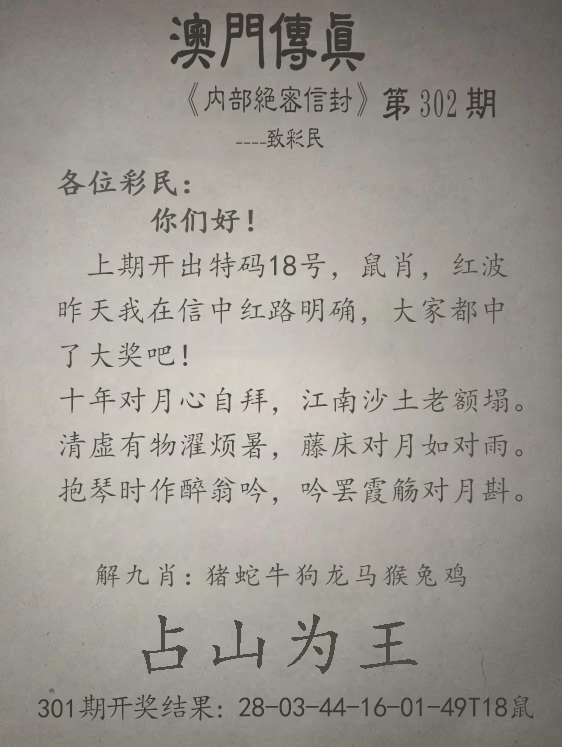 澳門傳眞
《内部絕密信封》第302期
----致彩民
各位彩民：
你们好！
上期开出特码18号，鼠肖，红波
昨天我在信中红路明确，大家都中
了大奖吧！
十年对月心自拜，江南沙土老额塌。
清虚有物濯烦暑，藤床对月如对雨。
抱琴时作醉翁吟，吟罢霞觞对月斟。
解九肖：猪蛇牛狗龙马猴兔鸡
占山为王
301期开奖结果：28-03-44-16-01-49T18鼠